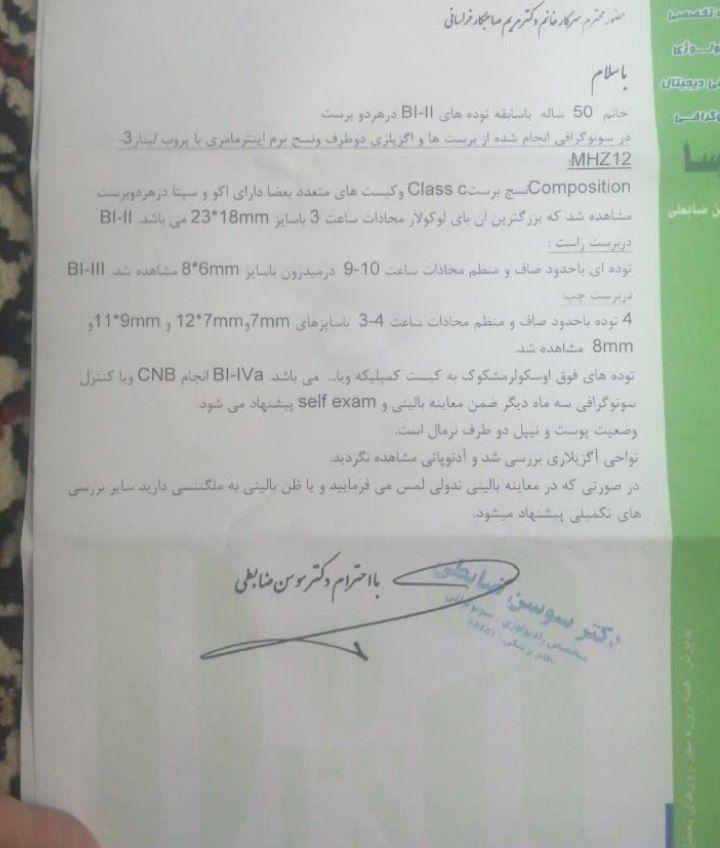 حضور محترم سرکار خانم دکتر مریم صاحبکار خراسانی
باسلام
خانم 50 ساله باسابقه توده های BI-II درهردو برست
در سونوگرافی انجام شده از برست ها و اگزیلری دوطرف ونسج نرم اینترمامری با پروب لینار3-
MHZ12:
Compositionنسج برستClass c وکیست های متعدد بعضا دارای اکو و سپتا درهردوبرست
مشاهده شد که بزرگترین ان بای لوکولار محاذات ساعت 3 باسایز 23*18mm می باشد. BI-II
دربرست راست :
توده ای باحدود صاف و منظم محاذات ساعت 10-9 درمیدزون باسایز 8*6mm مشاهده شد. BI-III
دربرست چپ:
4 توده باحدود صاف و منظم محاذات ساعت 4-3 باسایزهای 7mmو12*7mm و 11*9mmو
8mm مشاهده شد.
توده های فوق اوسکولرمشکوک به کیست کمپلیکه ویا... می باشد. BI-IVa انجام CNB ویا کنترل
سونوگرافی سه ماه دیگر ضمن معاینه بالینی و self exam پیشنهاد می شود.
وضعیت پوست و نیپل دو طرف نرمال است.
نواحی آگزیلاری بررسی شد و آدنوپاتی مشاهده نگردید.
در صورتی که در معاینه بالینی ندولی لمس می فرمایید و یا ظن بالینی به ملگننسی دارید سایر بررسی
های تکمیلی پیشنهاد میشود.
بااحترام دکتر سوسن ضابطی
دکتر سوسن ضابطی
متخصص رادیولوژی ، سونوگرافی
نظام پزشکی :
تخصصی
دیجیتال
ن ضابطی
پذیرش همه روزه بجز روزهای